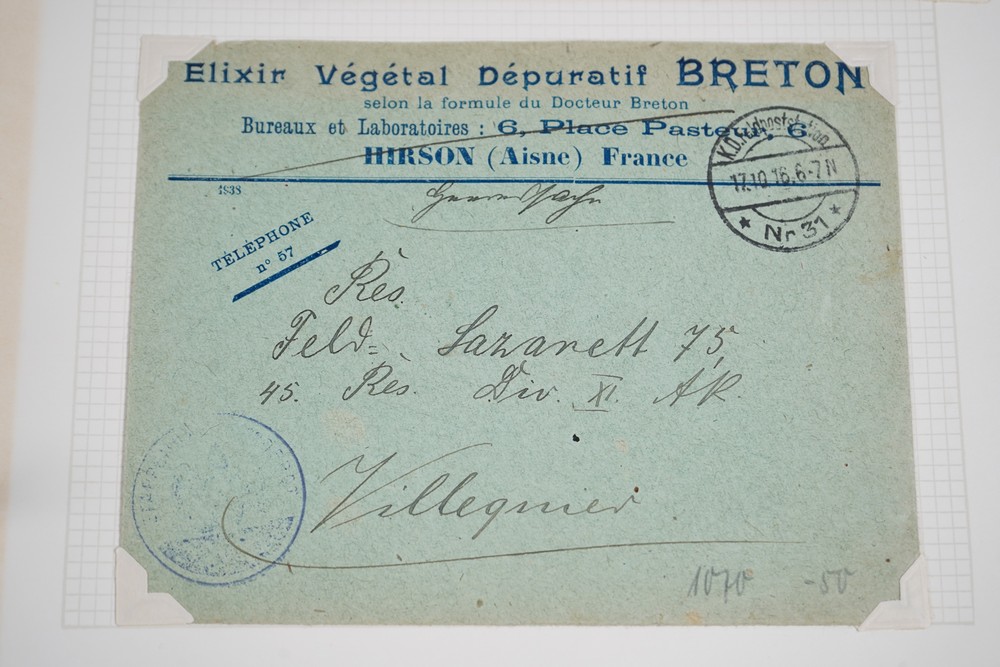 Elixir Végétal Dépuratif BRETON
selon la formule du Docteur Breton
Bureaux et Laboratoires : 6, Place Pasteur, 6
HIRSON (Aisne) France
1838
K.D. Feldpoststation
17.10 16.6-7N
★ Nr 31 ★
TÉLÉPHONE
n° 57
Heeressache
Res.
Feld= Lazarett 75,
45. Res. Div. XI. AK.
Villequier
1070 -50